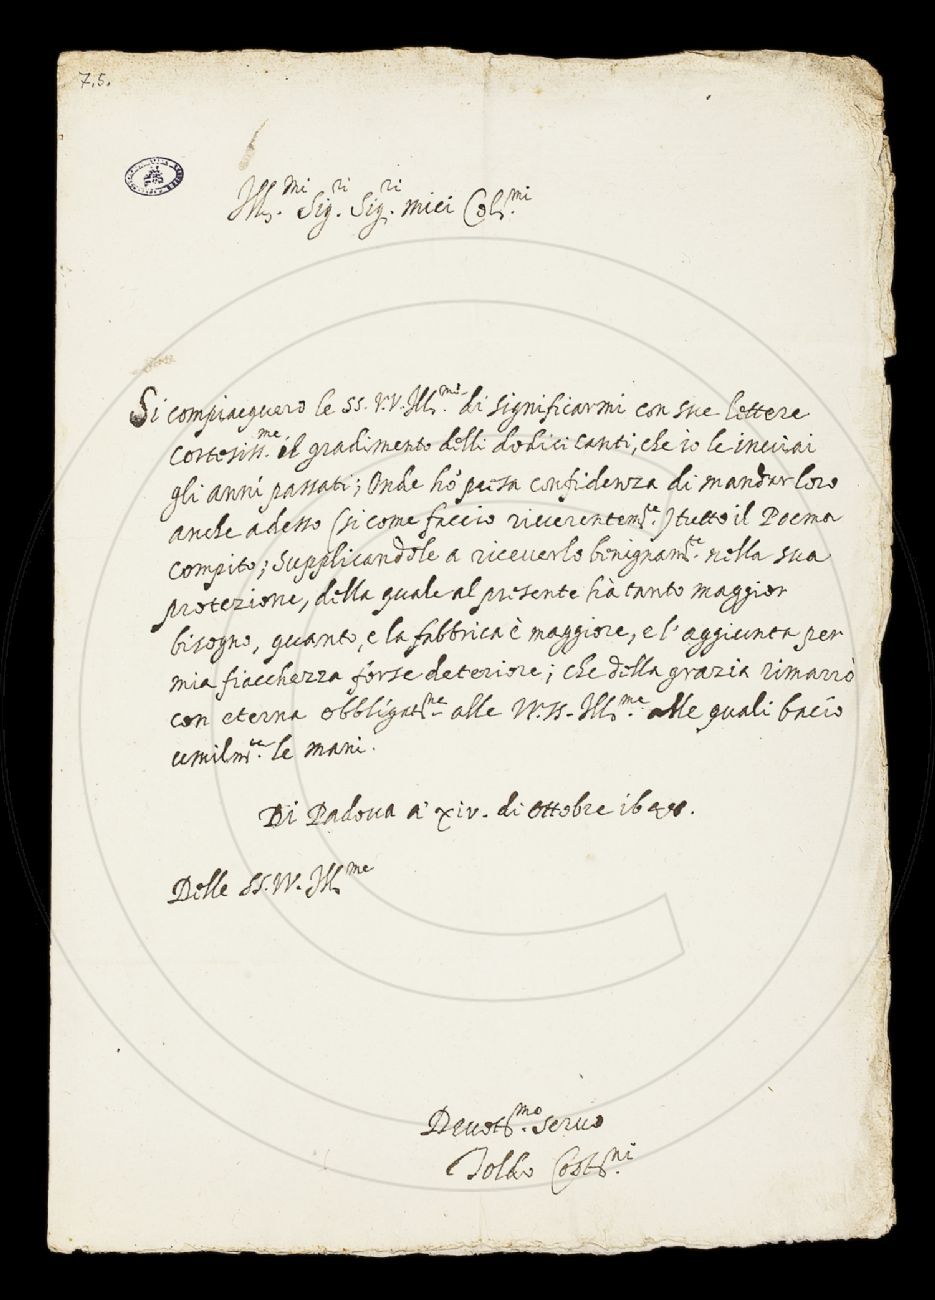 7.5.
Ill.mi Sig.ri Sig.ri miei Col.mi
Si compiacquero le SS.VV. Ill.me di significarmi con sue lettere
cortesiss.me il gradimento delli dodici canti, che io le inviai
gli anni passati; Onde hò presa confidenza di mandar loro
anche adesso (si come faccio riverentem.te) tutto il Poema
compito; Supplicandole a riceverlo benignam.te nella sua
protezione, della quale al presente hà tanto maggior
bisogno, quanto, e la fabbrica è maggiore, e l'aggiunta per
mia fiacchezza forse deteriore; che della grazia rimarrò
con eterna obbligat.ne alle VV.SS. Ill.me Alle quali bacio
umilm.te le mani.
Di Padova a' xiv. di Ottobre
Delle SS.VV. Ill.me
Devot.mo servo
Toldo Cost.ni